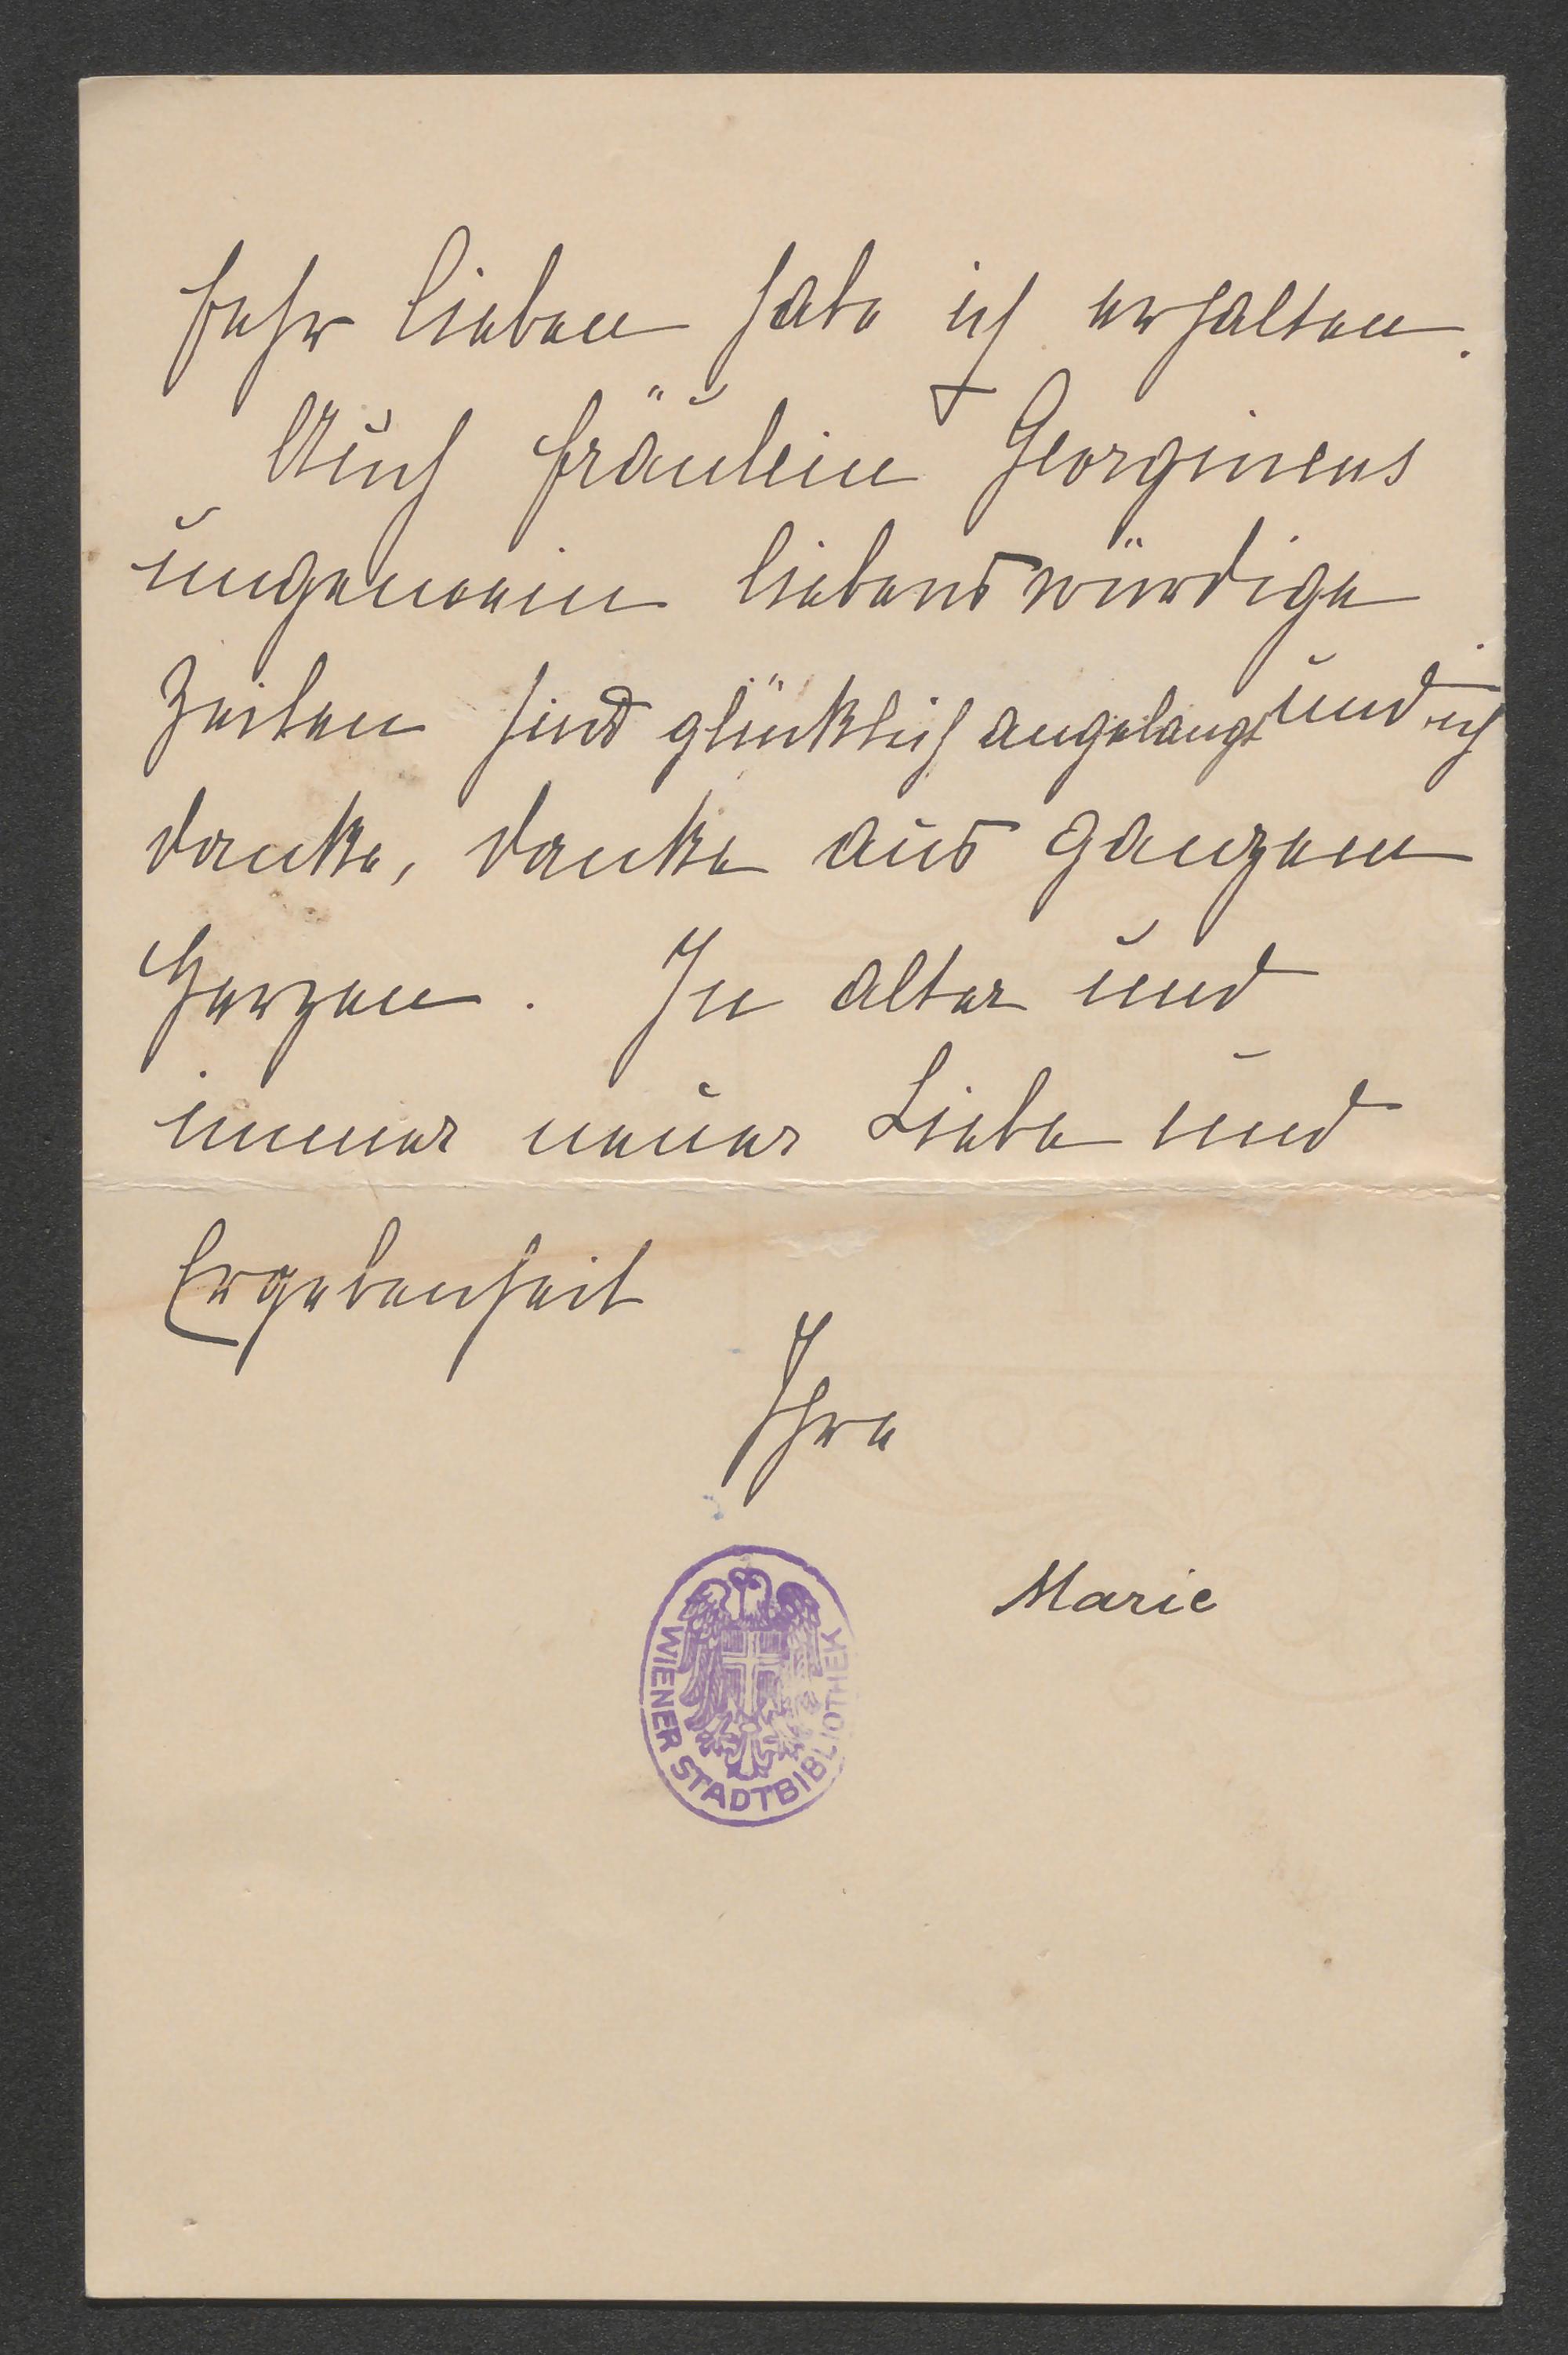 sehr lieben habe ich erhalten.
Auch Fräulein Georginens
ungemein liebenswürdige
Zeilen sind glücklich angelangt und ich
danke, danke aus ganzem
Herzen. In alter und
immer neuer Liebe und
Ergebenheit
Ihre
Marie
WIENER STADTBIBLIOTHEK